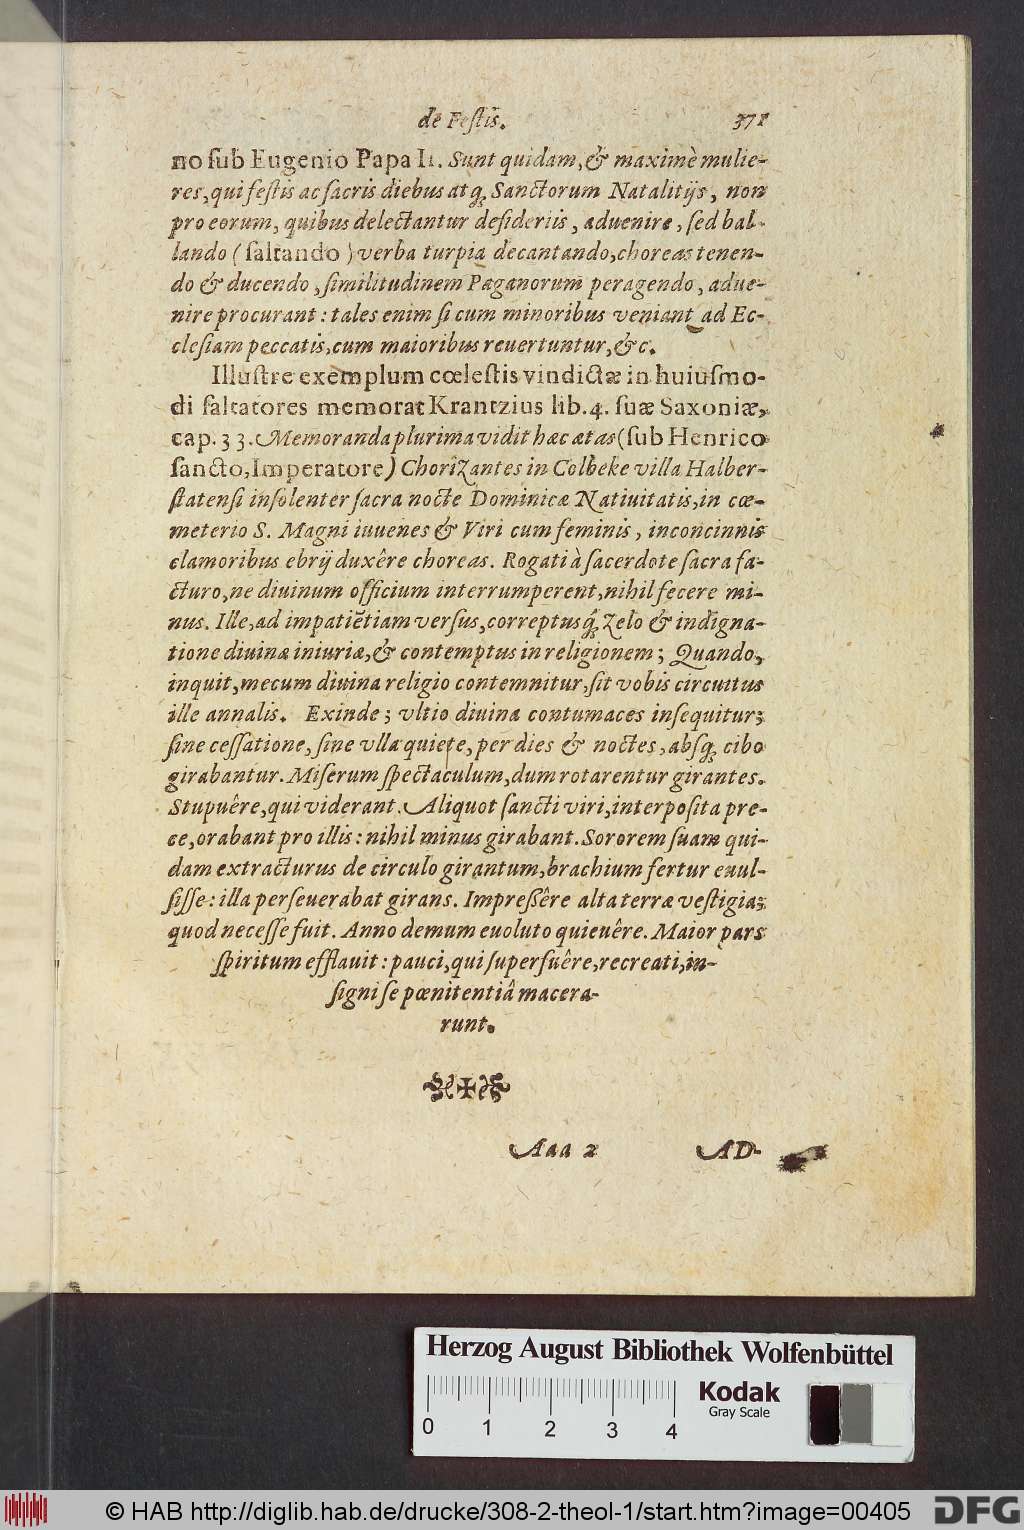 de Festis. 371
no ſub Eugenio Papa II. Sunt quidam, & maximè mulie-
res, qui feſtis ac ſacris diebus atq́; Sanctorum Natalitijs, non
pro eorum, quibus delectantur deſideriis, aduenire, ſed bal-
lando (ſaltando) verba turpia decantando, choreas tenen-
do & ducendo, ſimilitudinem Paganorum peragendo, adue-
nire procurant: tales enim ſi cum minoribus veniant ad Ec-
cleſiam peccatis, cum maioribus reuertuntur, &c.
Illuſtre exemplum cœleſtis vindictæ in huiuſmo-
di ſaltatores memorat Krantzius lib. 4. ſuæ Saxoniæ,
cap. 33. Memoranda plurima vidit hæc ætas (ſub Henrico
ſancto, Imperatore) Chorizantes in Colbeke villa Halber-
ſtatenſi inſolenter ſacra nocte Dominicæ Natiuitatis, in cœ-
meterio S. Magni iuuenes & Viri cum feminis, inconcinnis
clamoribus ebrij duxêre choreas. Rogati à ſacerdote ſacra fa-
cturo, ne diuinum officium interrumperent, nihil fecere mi-
nus. Ille, ad impatiẽtiam verſus, correptusq́; zelo & indigna-
tione diuinæ iniuriæ, & contemptus in religionem; Quando,
inquit, mecum diuina religio contemnitur, ſit vobis circuitus
ille annalis. Exinde; vltio diuina contumaces inſequitur;
ſine ceſſatione, ſine vlla quiete, per dies & noctes, abſq́; cibo
girabantur. Miſerum ſpectaculum, dum rotarentur girantes.
Stupuêre, qui viderant. Aliquot ſancti viri, interpoſita pre-
ce, orabant pro illis: nihil minus girabant. Sororem ſuam qui-
dam extracturus de circulo girantum, brachium fertur euul-
ſiſſe: illa perſeuerabat girans. Impreſſêre alta terræ veſtigia;
quod neceſſe fuit. Anno demum euoluto quieuêre. Maior pars
ſpiritum efflauit: pauci, qui ſuperfuêre, recreati, in-
ſigni ſe pœnitentiâ macera-
runt.
Aaa 2 AD-
Herzog August Bibliothek Wolfenbüttel
0 1 2 3 4
Kodak
Gray Scale
© HAB http://diglib.hab.de/drucke/308-2-theol-1/start.htm?image=00405 DFG